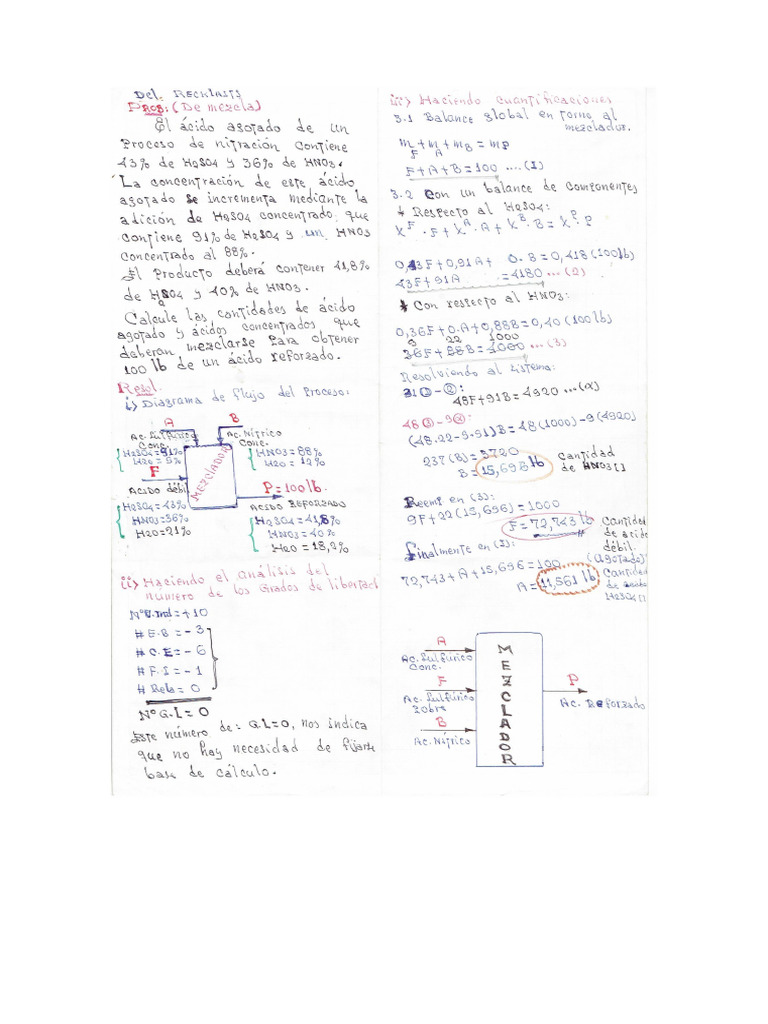 Del. REKLAITIS
PROB: (De mezcla)
El ácido agotado de un
Proceso de nitración contiene
43% de H2SO4 y 36% de HNO3.
La concentración de este ácido
agotado se incrementa mediante la
adición de H2SO4 concentrado que
contiene 91% de H2SO4 y un HNO3
concentrado al 88%.
El Producto deberá contener 41,8%
de H2SO4 y 40% de HNO3.
Calcule las cantidades de ácido
agotado y ácidos concentrados que
deberán mezclarse para obtener
100 lb de un ácido reforzado.
Resol.
i) Diagrama de flujo del Proceso:
A
B
Ac. Sulfúrico
Conc.
Ac. Nítrico
Conc.
H2SO4=91%
H2O = 9%
HNO3=88%
H2O = 12%
F
MEZCLADOR
ACIDO débil
P=100lb.
ACIDO REFORZADO
H2SO4=43%
HNO3=36%
H2O=21%
H2SO4=41,8%
HNO3=40%
H2O = 18,2%
ii) Haciendo el análisis del
número de los Grados de libertad
NºV.Ind=+10
# E.B = - 3
# C.E = - 6
# F.I = - 1
# Rels = 0
Nº G.L = 0
Este número de: G.L=0, nos indica
que no hay necesidad de fijarse
base de cálculo.
iii) Haciendo cuantificaciones
3.1 Balance global en torno al
mezclador.
mF+mA+mB = mP
F+A+B=100 ....(1)
3.2 Con un balance de Componentes
* Respecto al H2SO4:
X^F·F+X^A·A+X^B·B=X^P·P
0,43F+0,91A+ 0·B=0,418(100lb)
43F+91A =4180 ...(2)
* Con respecto al HNO3:
0,36F+0·A+0,88B=0,40(100lb)
9 22 1000
36F+88B=4000 ...(3)
Resolviendo al Sistema:
91①-②: 48F+91B=4920 ...(α)
48③-9α:
(48·22-9·91)B=48(1000)-9(4920)
237(B)=3720
B=15,696 lb
Cantidad
de HNO3[]
Reem. en (3):
9F+22(15,696)=1000
F=72,743 lb
Cantidad
de acido
débil.
(Agotado)
Finalmente en (1):
72,743+A+15,696=100
A=11,561 lb
Cantidad
de
H2SO4[]
A
Ac. Sulfúrico
Conc.
F
Ac. Sulfúrico
B
Ac. Nítrico
MEZCLADOR
P
Ac. Reforzado